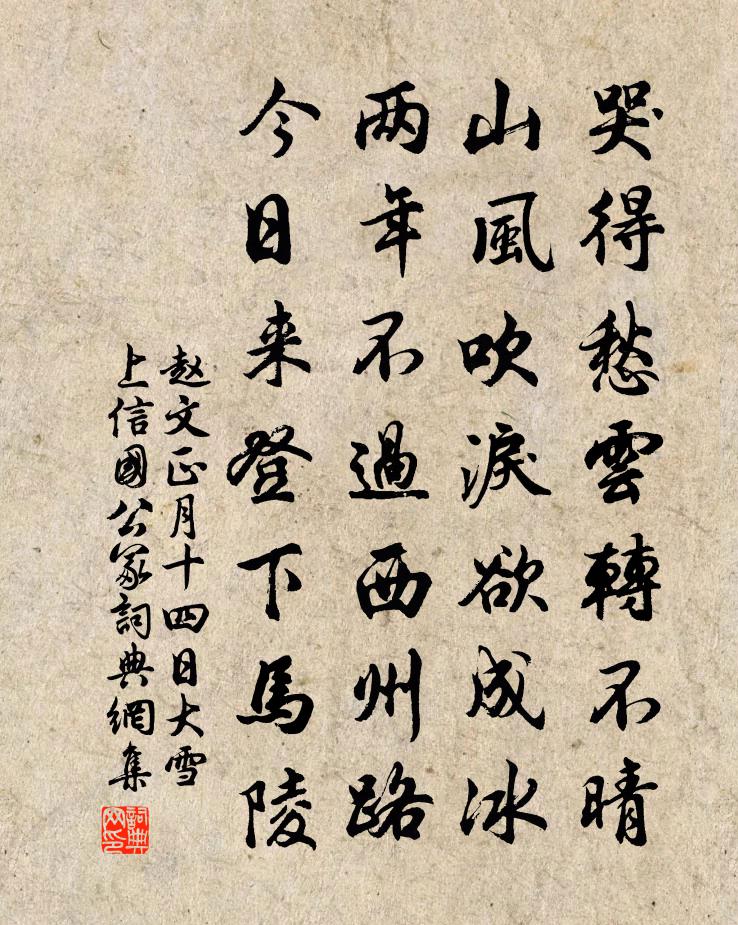 哭得愁雲轉不晴
山風吹淚欲成冰
两年不過西州路
今日来登下馬陵
赵文正月十四日大雪
上信國公冢詞典網集
詞典网印